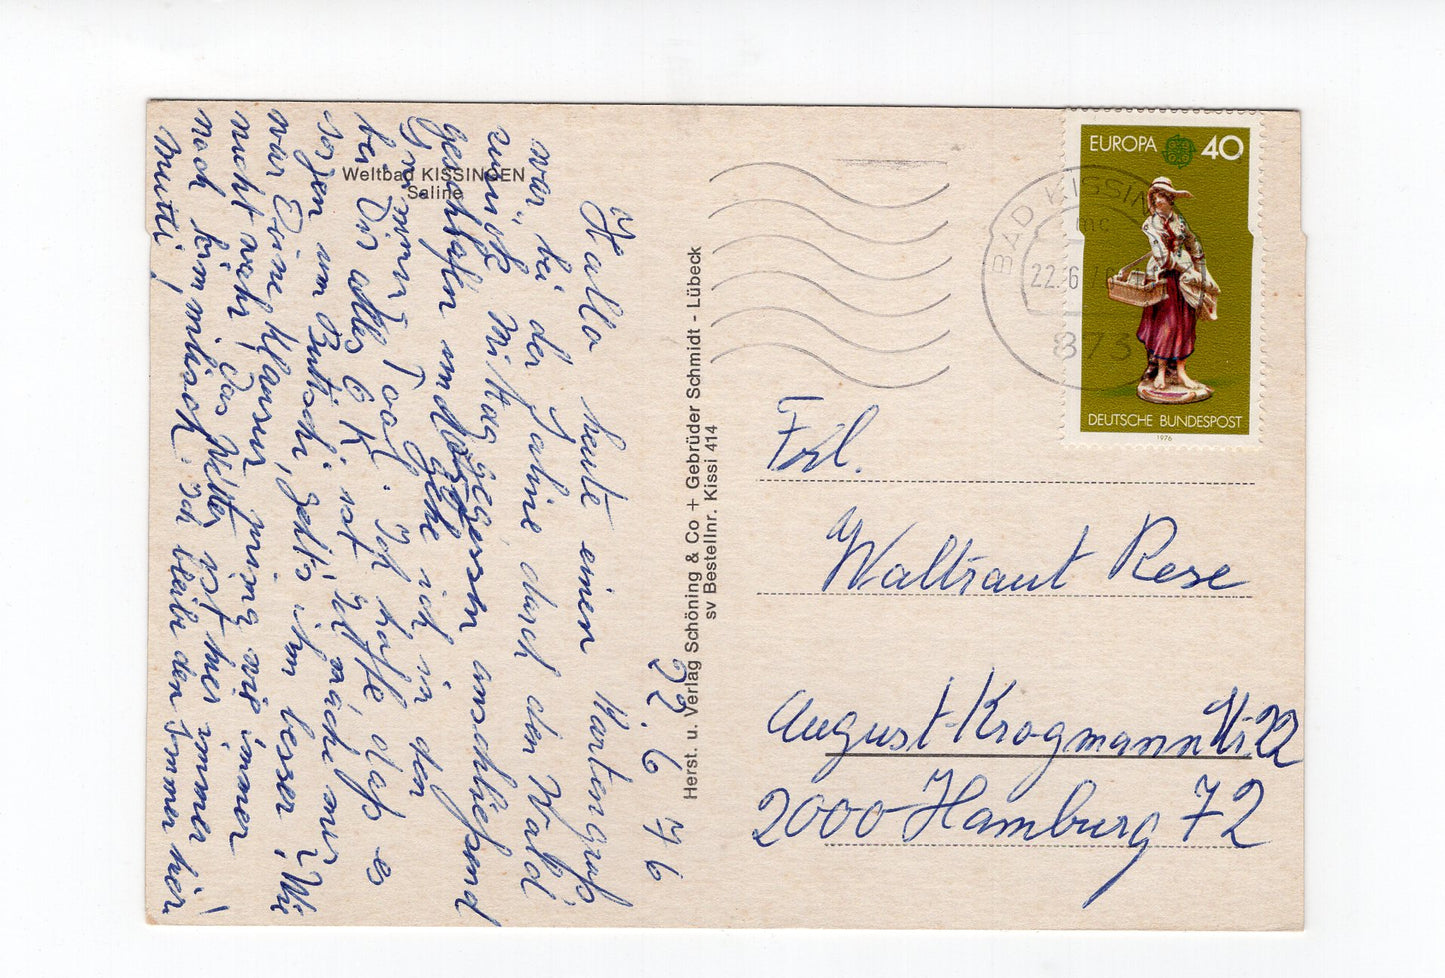 Weltbad KISSINGEN
Saline
22. 6. 76
Hallo heute einen Kartengruß
war bei der Saline durch den Wald
Mittag gegessen anschließend
geschlafen und gehe ich in den
Tag. Ich hoffe daß es
bei Dir alles O.K. ist. Ich mache mir
sorgen um Butschi, geht's ihm besser, Wie
war Deine Klausur wie immer
nicht wahr, das Wetter ist hier immer
noch himmlisch. Ich bleibe den Sommer hier
Mutti!
Herst. u. Verlag Schöning & Co + Gebrüder Schmidt - Lübeck
sv Bestellnr. Kissi 414
EUROPA 40
DEUTSCHE BUNDESPOST
1976
BAD KISSIN
mc
22.-6.76
873
Frl.
Waltraut Rose
August-Krogmann 22
2000 Hamburg 72